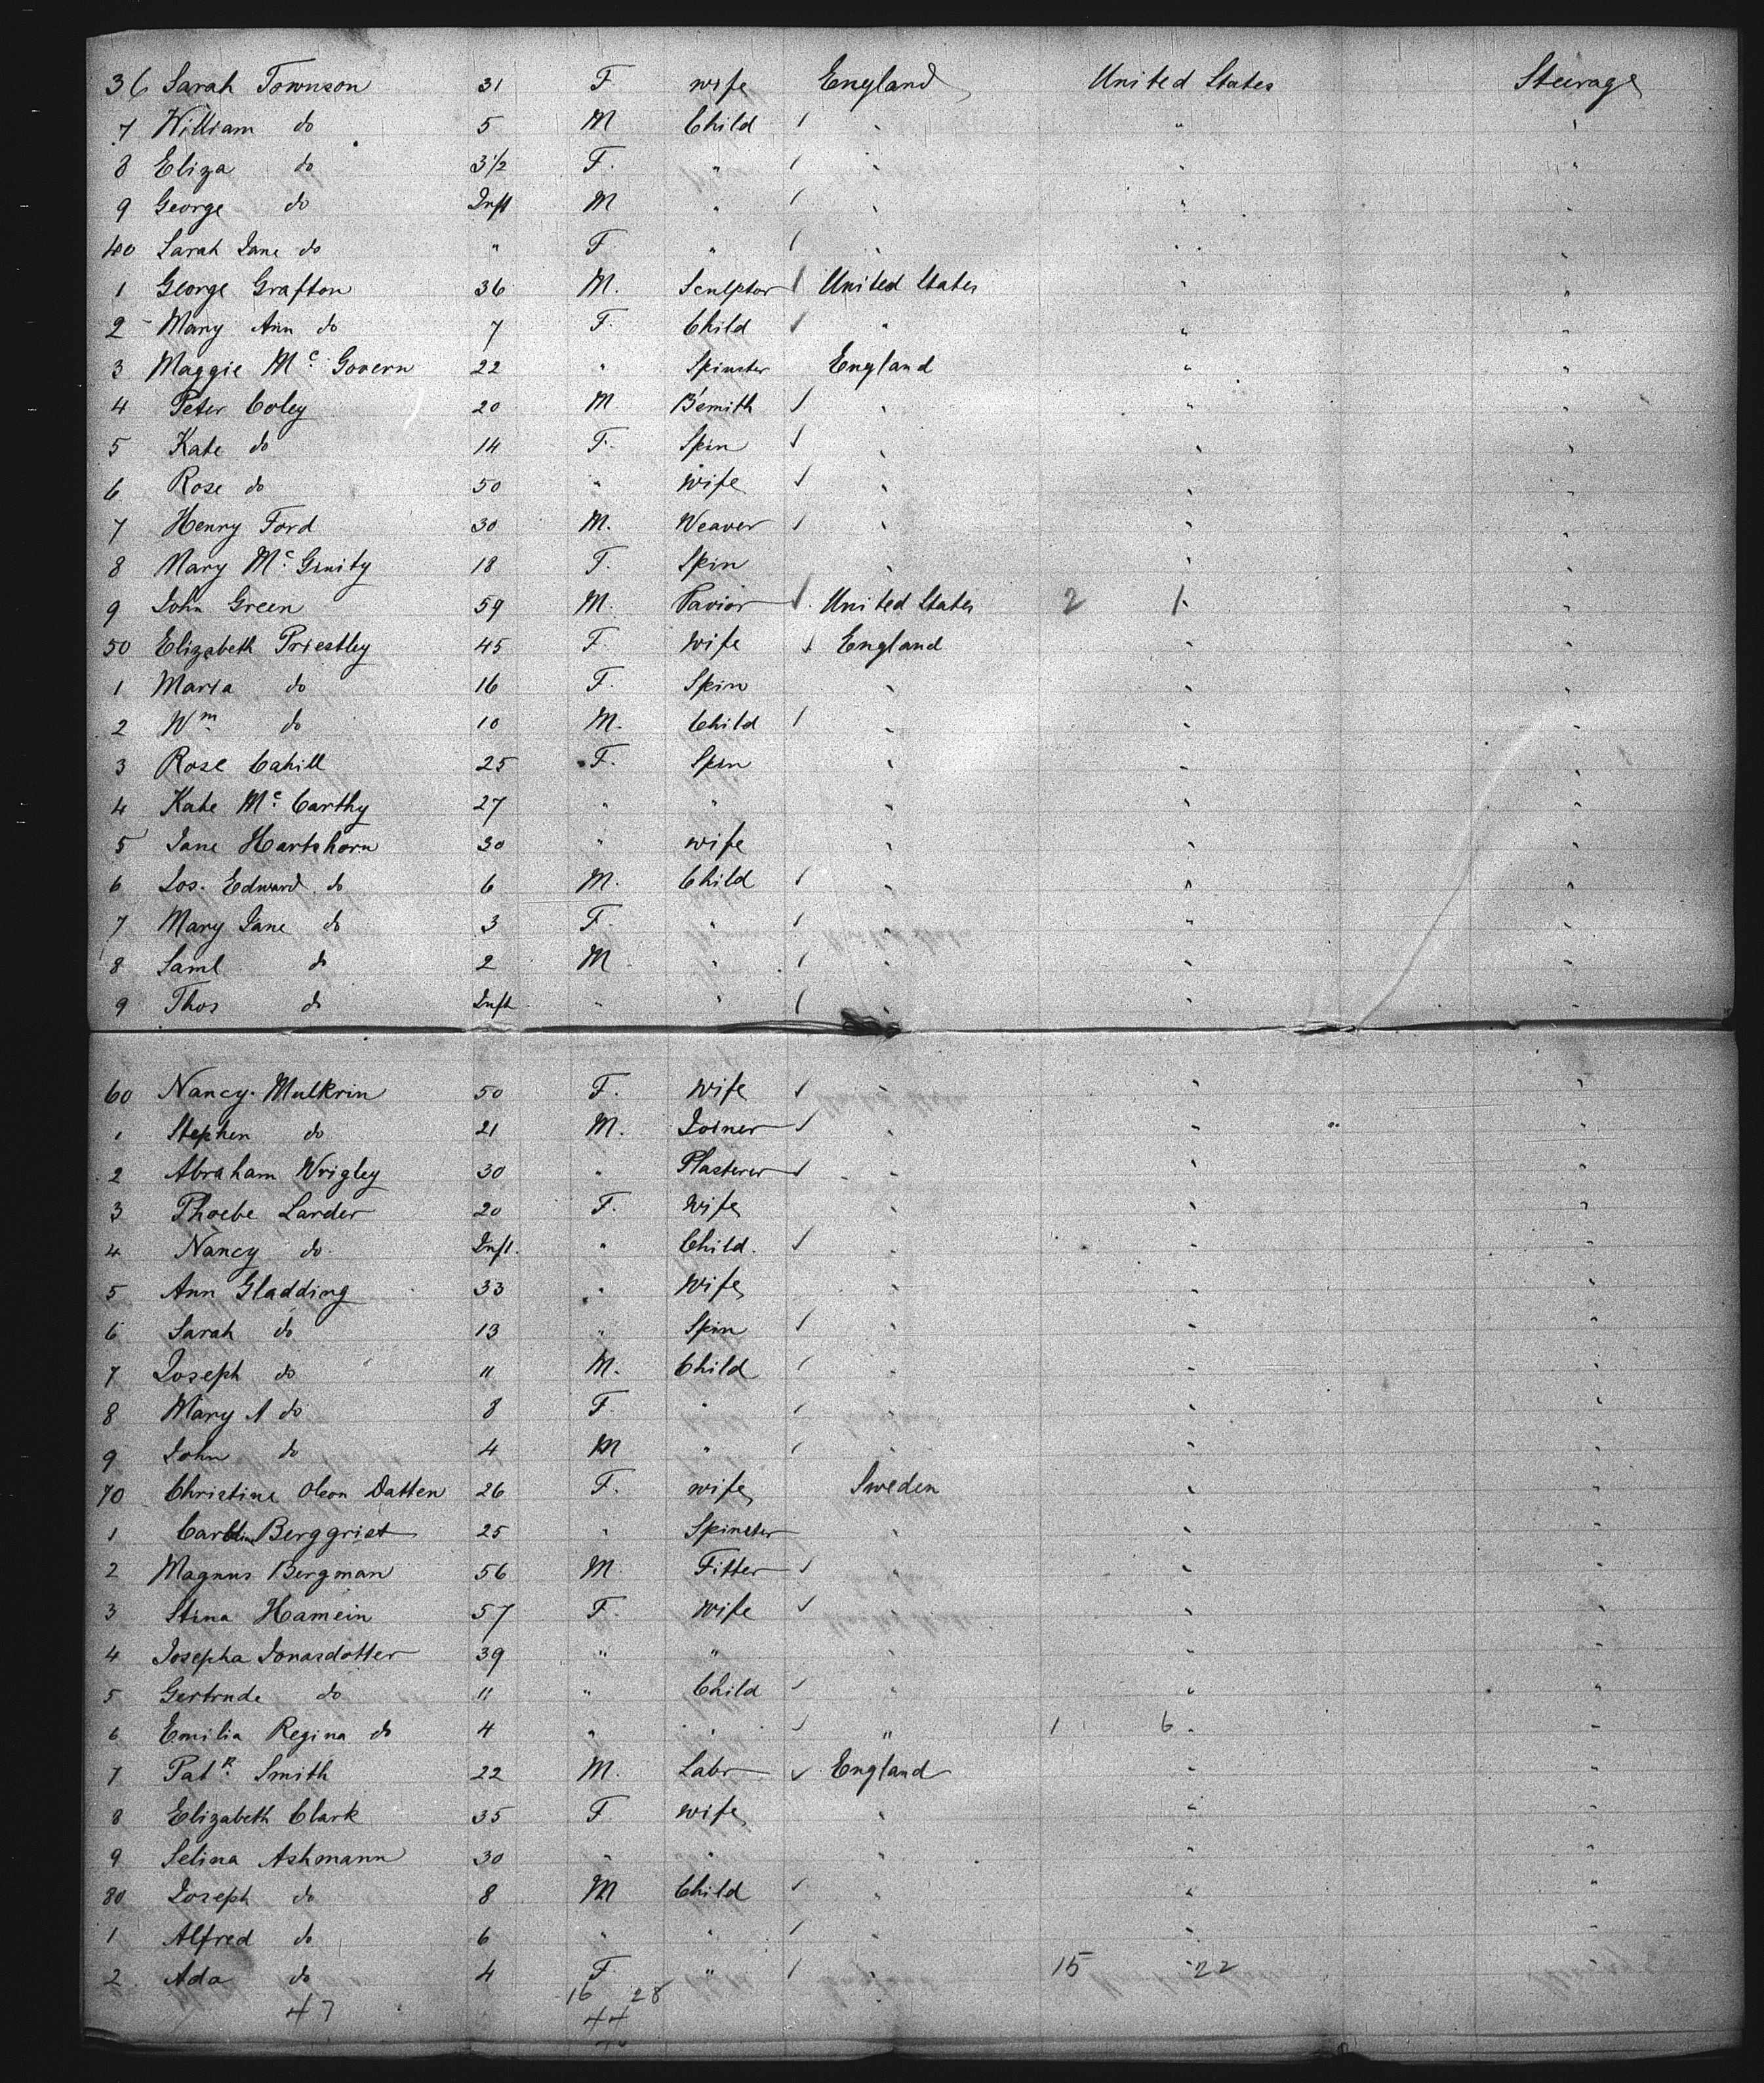 36 Sarah Townson 31 F wife England United States Steerage
7 William do 5 M Child " " "
8 Eliza do 3 1/2 F. " " " "
9 George do Inft M " " " "
40 Sarah Jane do " F " " " "
1 George Grafton 36 M. Sculptor United States " "
2 Mary Ann do 7 F. Child " " "
3 Maggie Mc Govern 22 " Spinster England " "
4 Peter Coley 20 M B'smith " " "
5 Kate do 14 F. Spin " " "
6 Rose do 50 " Wife " " "
7 Henry Ford 30 M. Weaver " " "
8 Mary Mc Ginity 18 F. Spin " " "
9 John Green 59 M. Pavior United States 2 1 "
50 Elizabeth Priestley 45 F. Wife England " "
1 Maria do 16 F. Spin " " "
2 Wm do 10 M. Child " " "
3 Rose Cahill 25 F. Spin " " "
4 Kate Mc Carthy 27 " " " " "
5 Jane Hartshorn 30 " wife " " "
6 Jos. Edward do 6 M. Child " " "
7 Mary Jane do 3 F. " " " "
8 Saml do 2 M " " " "
9 Thos do Inft " " " " "
60 Nancy Mulkrin 50 F. Wife " " "
1 Stephen do 21 M. Joiner " " "
2 Abraham Wrigley 30 " Plasterer " " "
3 Phoebe Larder 20 F. Wife " " "
4 Nancy do Inft. " Child. " " "
5 Ann Gladding 33 " Wife " " "
6 Sarah do 13 " Spin " " "
7 Joseph do 11 M. Child " " "
8 Mary A do 8 F " " " "
9 John do 4 M " " " "
70 Christine Olson Datten 26 F. wife Sweden " "
1 Berggrist 25 " Spinster " " "
2 Magnus Bergman 56 M. Fitter " " "
3 Stina Hamein 57 F. Wife " " "
4 Josepha Jonasdotter 39 " " " " "
5 Gertrude do 11 " Child " " "
6 Emilia Regina do 4 " " " 1 6 "
7 Patk Smith 22 M. Labr England " "
8 Elizabeth Clark 35 F wife " " "
9 Selina Ashmann 30 " " " " "
80 Joseph do 8 M Child " " "
1 Alfred do 6 " " " " "
2 Ada do 4 F " " 15 22 "
47 16 28
44